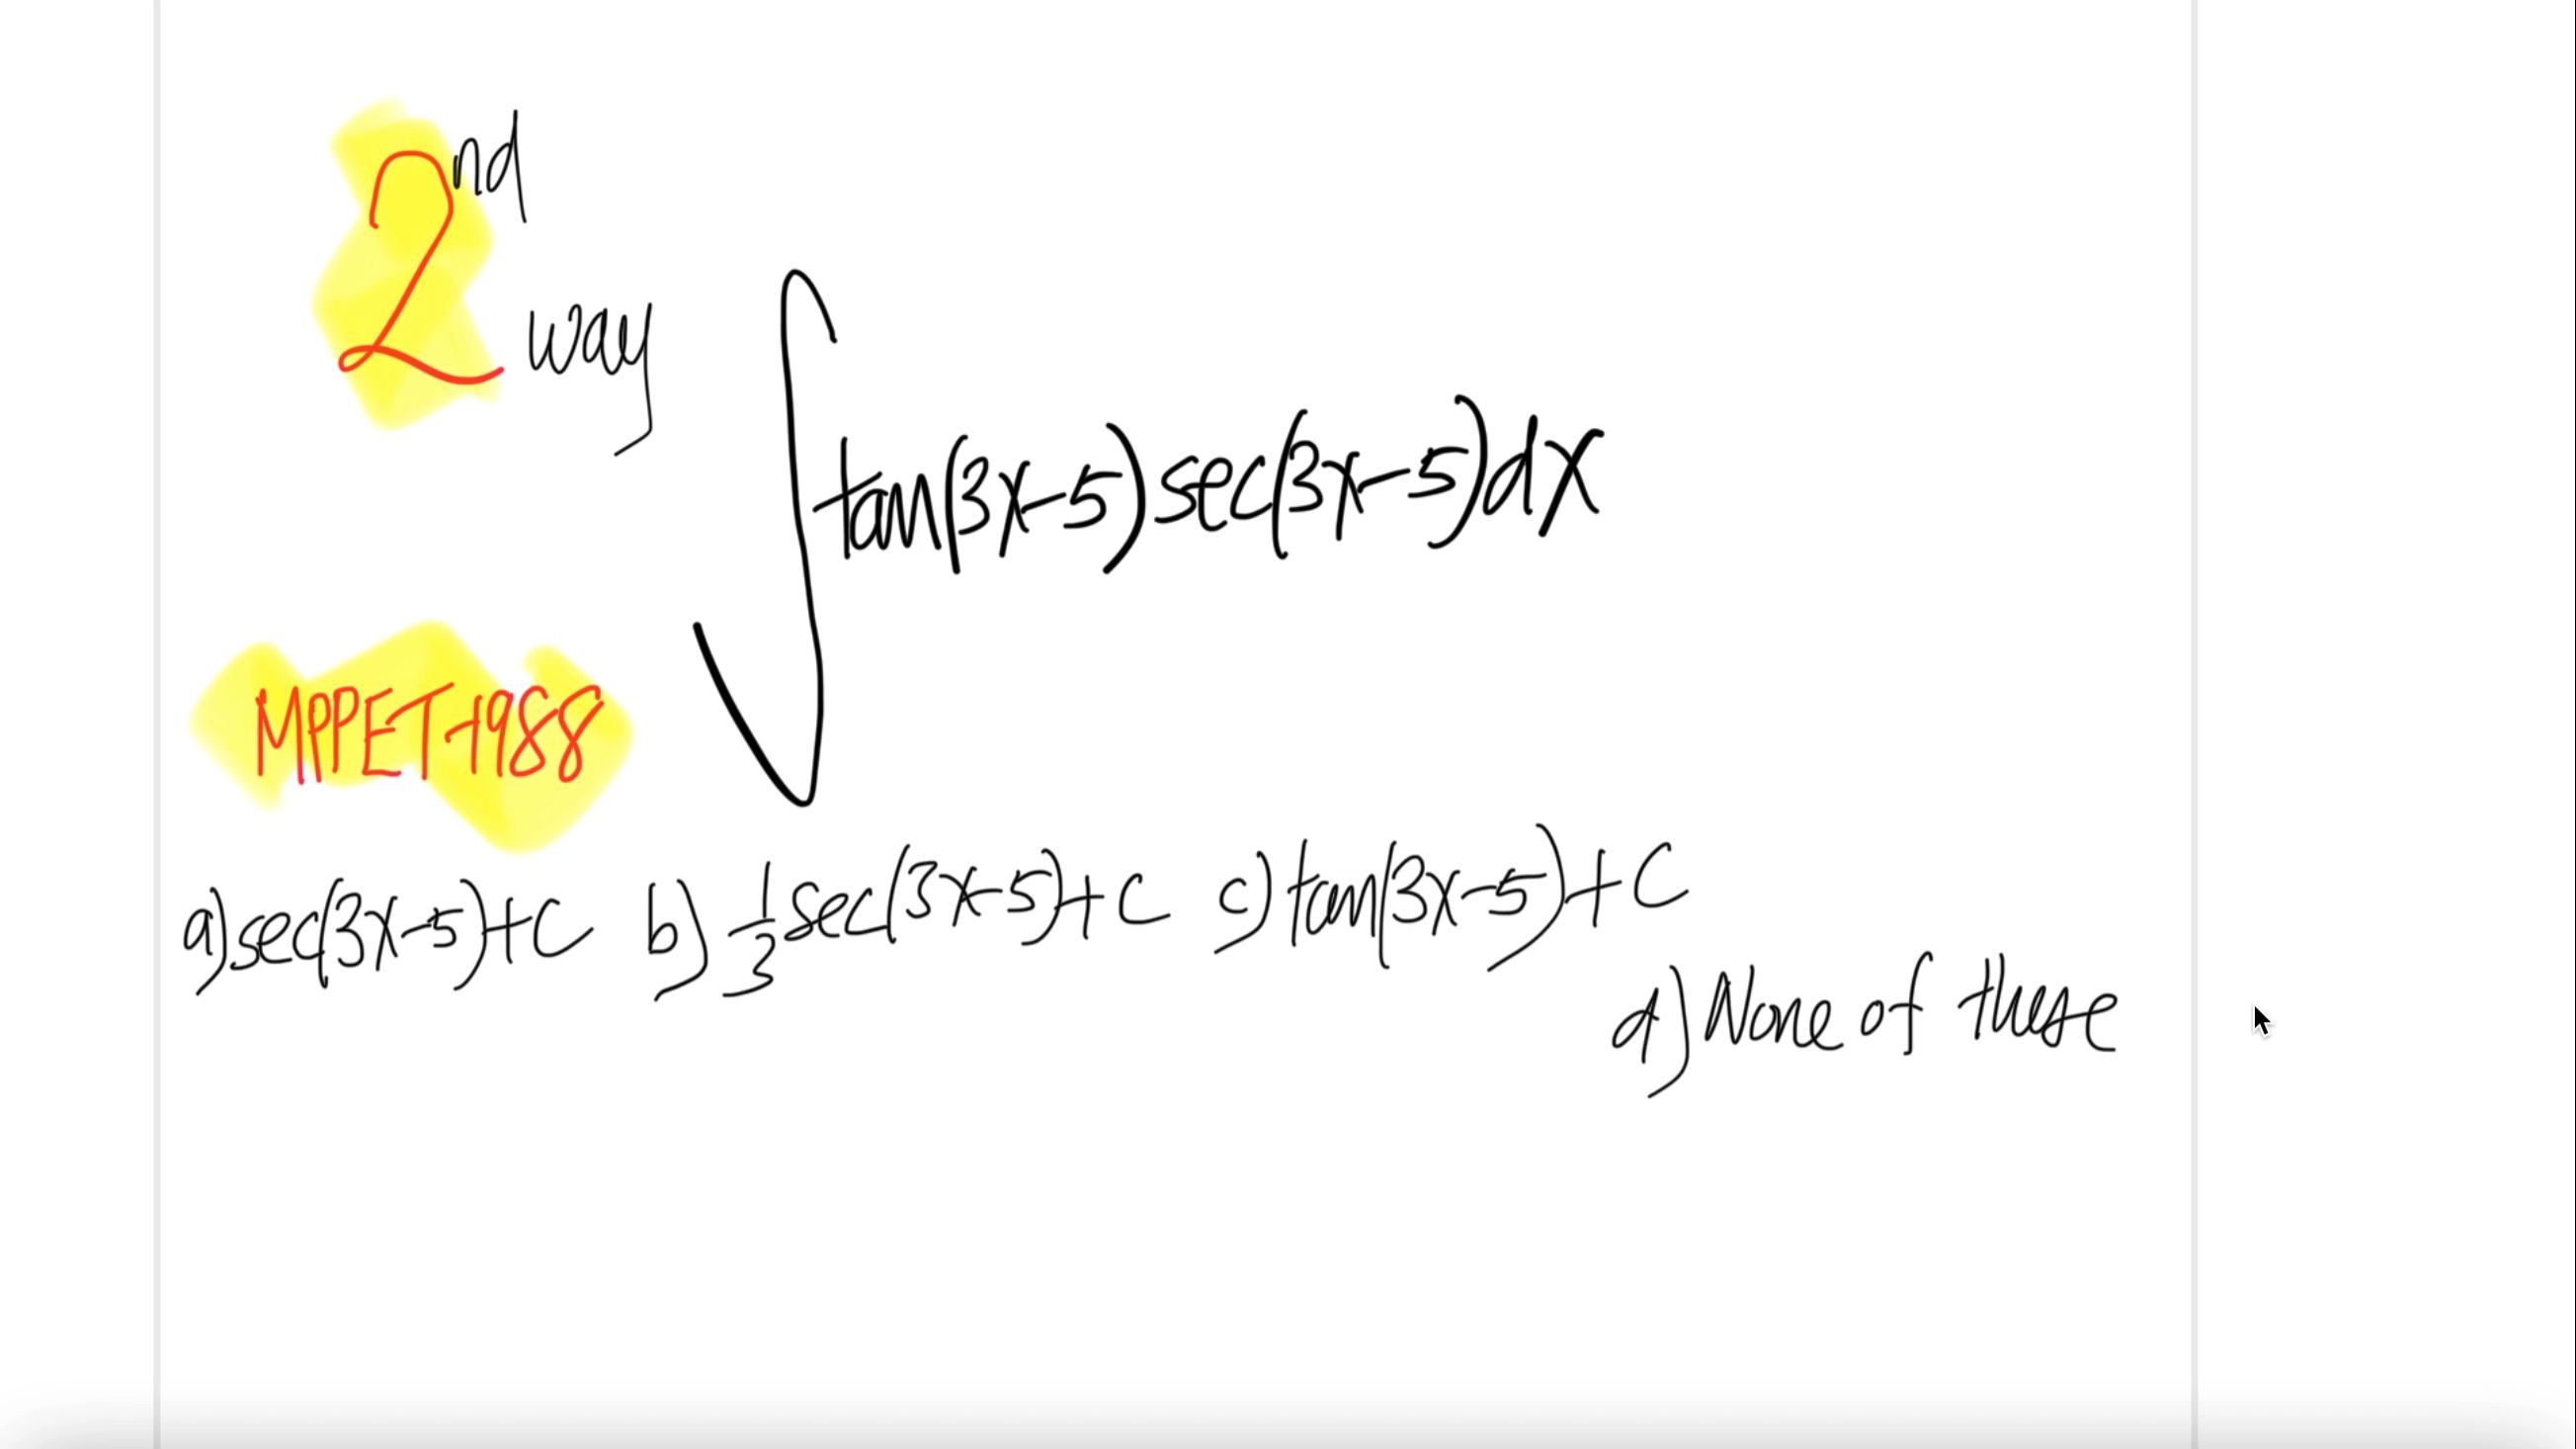 2nd way
∫tan(3x-5)sec(3x-5)dx
MPPET-1988
a)sec(3x-5)+C b) 1/3 sec(3x-5)+C c)tan(3x-5)+C
d)None of these